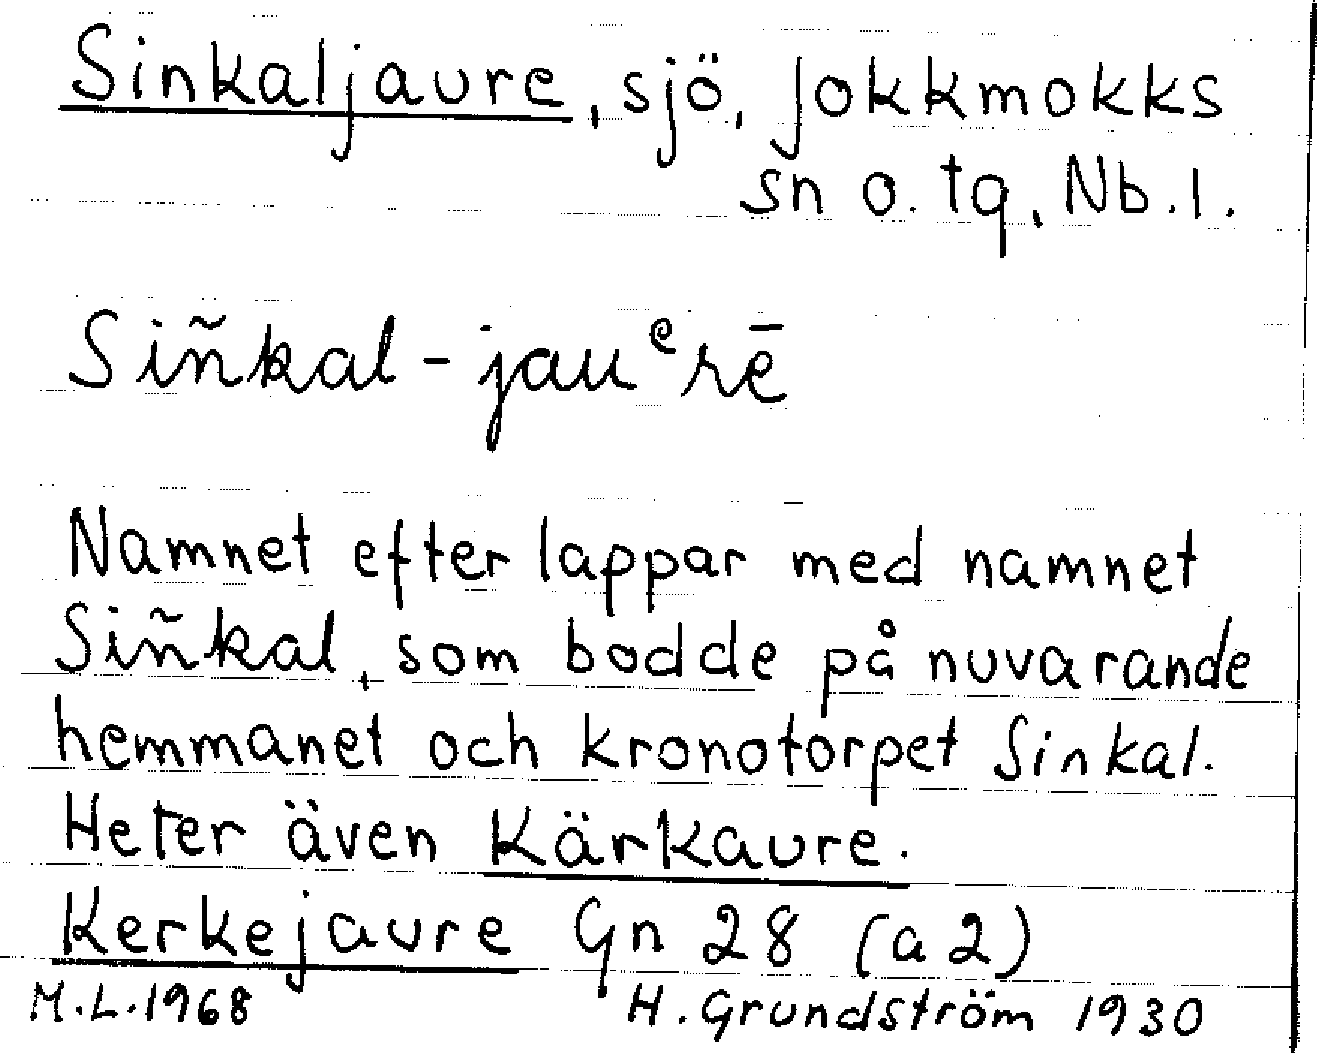 Sinkaljaure, sjö, Jokkmokks
sn o. tg, Nb. l.
Siñkal-jauᵉrē
Namnet efter lappar med namnet
Siñkal, som bodde på nuvarande
hemmanet och kronotorpet Sinkal.
Heter även Kärkaure.
Kerkejaure Gn 28 (a2)
M.L. 1968 H. Grundström 1930